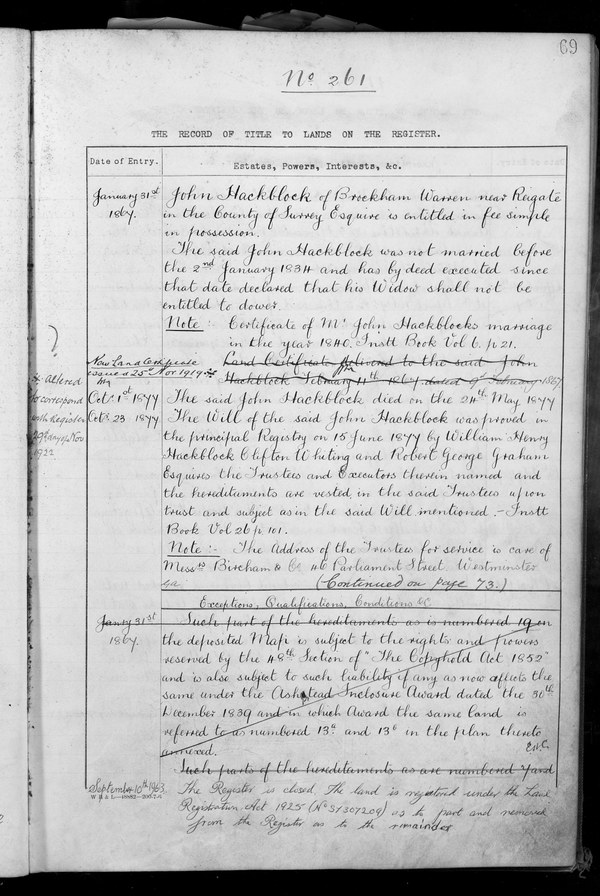 69
No 261
THE RECORD OF TITLE TO LANDS ON THE REGISTER.
Date of Entry.
Estates, Powers, Interests, &c.
January 31st
1867.
John Hackblock of Brockham Warren near Reigate
in the County of Surrey Esquire is entitled in fee simple
in possession.
The said John Hackblock was not married before
the 2nd January 1834 and has by deed executed since
that date declared that his Widow shall not be
entitled to dower.
Note: Certificate of Mr John Hackblocks marriage
in the year 1840. Instt Book Vol 6. p. 21.
New Land Certificate
issued 25th Nov. 1919
Land Certificate delivered to the said John
Hackblock February 11th 1867 dated February 1867
* Altered
to correspond
with Register
29th day of Nov
1922
Octr 1st 1877
The said John Hackblock died on the 24th May 1877
Octr 23 1877
The Will of the said John Hackblock was proved in
the principal Registry on 15 June 1877 by William Henry
Hackblock Clifton Whiting and Robert George Graham
Esquires the Trustees and Executors therein named and
the hereditaments are vested in the said Trustees upon
trust and subject as in the said Will mentioned. - Instt
Book Vol 26 p. 101.
Note :- The Address of the Trustees for service is care of
Messrs Bircham & Co 46 Parliament Street Westminster
(Continued on page 73.)
Exceptions, Qualifications, Conditions &c
Jany 31st
1867.
Such part of the hereditaments as is numbered 19 on
the deposited Map is subject to the rights and powers
reserved by the 48th Section of "The Copyhold Act 1852"
and is also subject to such liability if any as now affects the
same under the Ashtead Inclosure Award dated the 30th
December 1839 and in which Award the same land is
referred to as numbered 13d and 13e in the plan thereto
annexed.
Such parts of the hereditaments as are numbered 7 and
September 10th 1963
The Register is closed. The land is registered under the Land
Registration Act 1925 (No SY307209) as to part and removed
from the Register as to the remainder